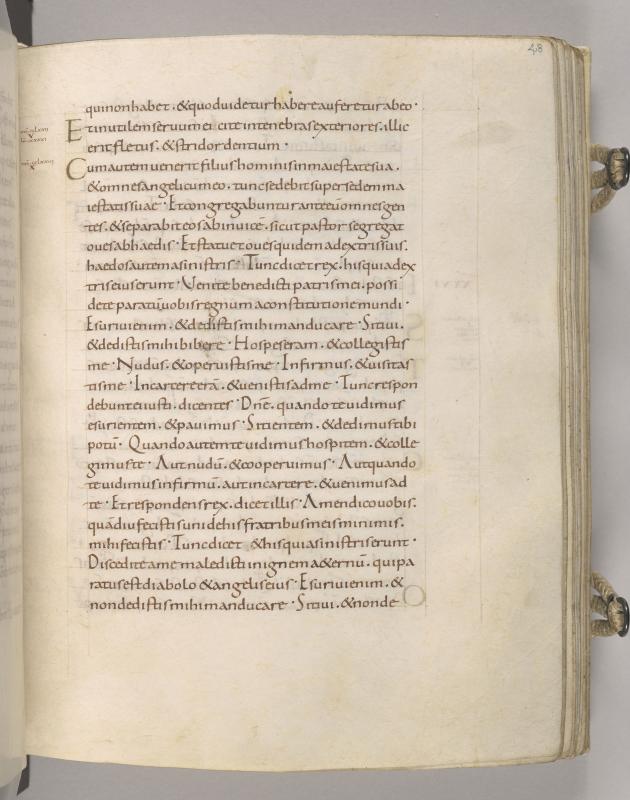 48
qui non habet . & quod uidetur habere auferetur ab eo .
Et inutilem seruum eicite in tenebras exteriores . illic
erit fletus . & stridor dentium .
Cum autem uenerit filius hominis in maiestate sua .
& omnes angeli cum eo . tunc sedebit super sedem ma
iestatis suae . Et congregabuntur ante eū omnes gen
tes . & separabit eos ab inuicē . sicut pastor segregat
oues ab haedis . Et statuet oues quidem a dextris suis .
haedos autem a sinistris . Tunc dicet rex . his qui a dex
tris eius erunt . Venite benedicti patris mei . possi
dete paratū uobis regnum a constitutione mundi .
Esuriui enim . & dedistis mihi manducare . Sitiui .
& dedistis mihi bibere . Hospes eram . & collegistis
me . Nudus . & operuistis me . Infirmus . & uisitas
tis me . In carcere erā . & uenistis ad me . Tunc respon
debunt ei iusti . dicentes . Dn̄e . quando te uidimus
esurientem . & pauimus . Sitientem . & dedimus tibi
potū . Quando autem te uidimus hospitem . & colle
gimus te . Aut nudū . & cooperuimus . Aut quando
te uidimus infirmū . aut in carcere . & uenimus ad
te . Et respondens rex . dicet illis . Amen dico uobis .
quādiu fecistis uni de his fratribus meis minimis .
mihi fecistis . Tunc dicet & his qui a sinistris erunt .
Discedite a me maledicti in ignem aeternū . qui pa
ratus est diabolo & angelis eius . Esuriui enim . &
non dedistis mihi manducare . Sitiui . & non de